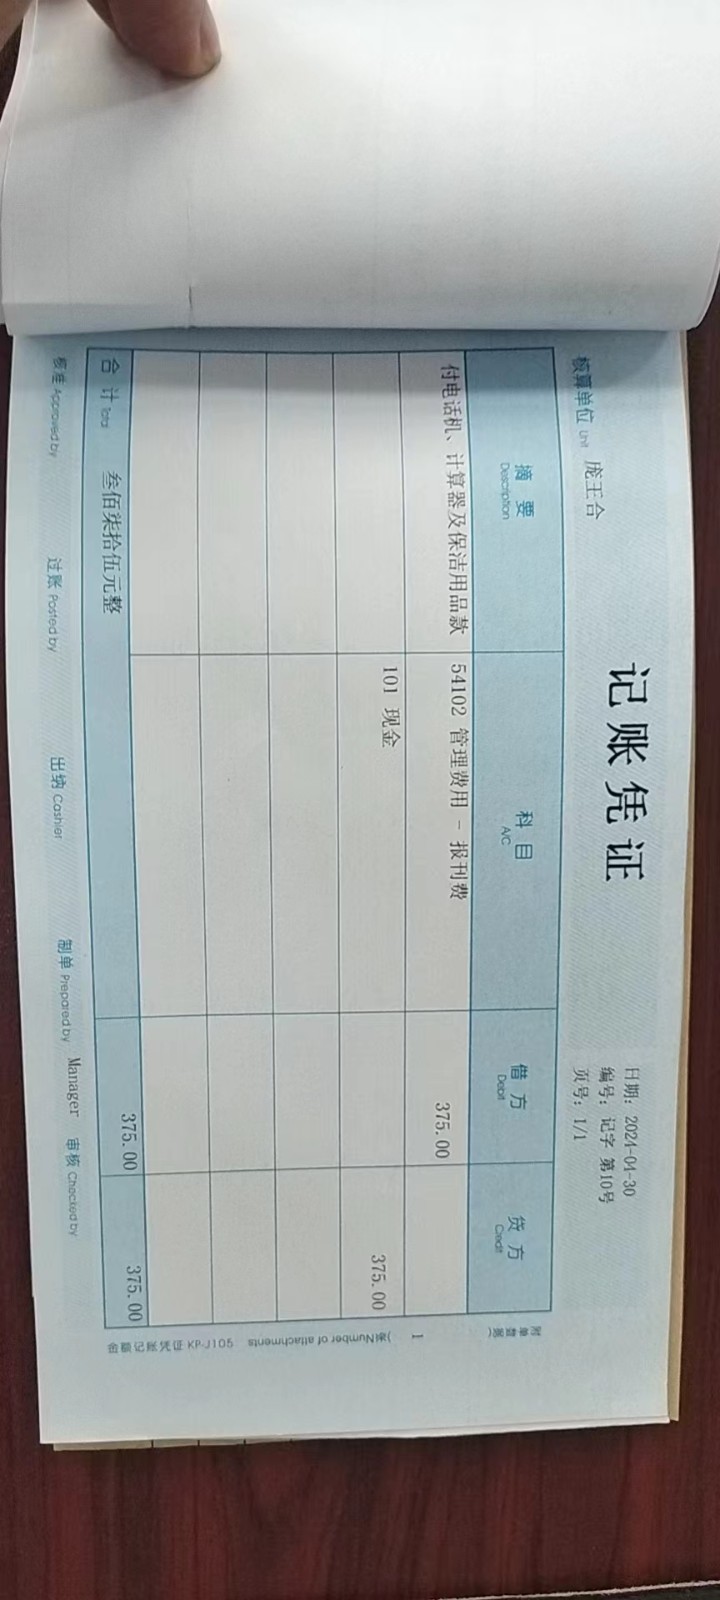 记账凭证
日期: 2024-04-30
编号: 记字 第10号
核算单位 Unit 庞王合
页号: 1/1
摘要 科目 借方 贷方
Description A/C Debit Credit
付电话机、计算器及保洁用品款 54102 管理费用 - 报刊费 375.00
101 现金 375.00
合计 Total 叁佰柒拾伍元整 375.00 375.00
核准 Approved by 过账 Posted by 出纳 Cashier 制单 Prepared by Manager 审核 Checked by
附单数据(
1
)张 Number of attachments
金额记账凭证 KP-J105